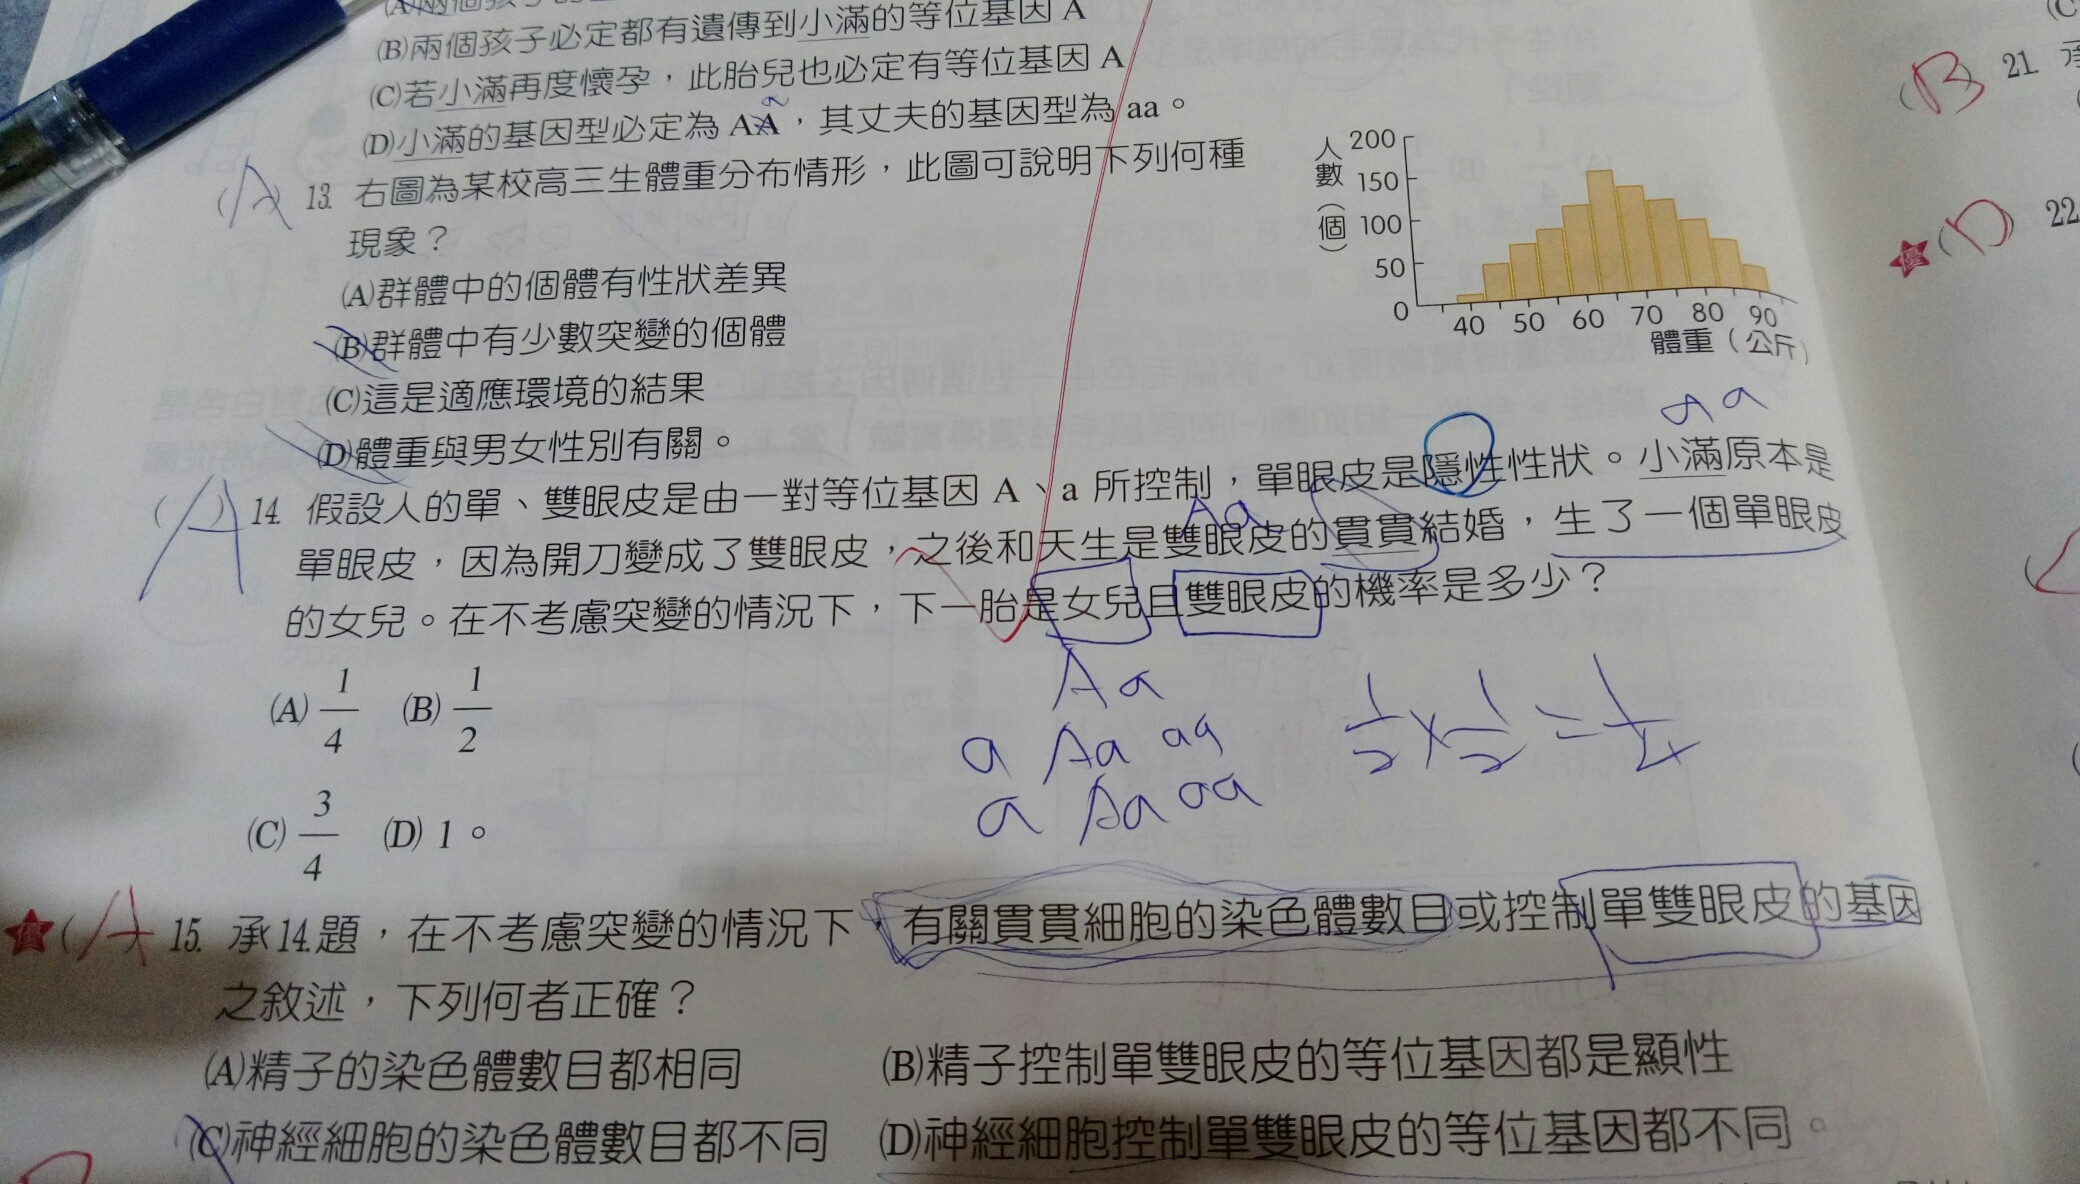 (A)兩個孩子
(B)兩個孩子必定都有遺傳到小滿的等位基因 A
(C)若小滿再度懷孕，此胎兒也必定有等位基因 A
(D)小滿的基因型必定為 AA，其丈夫的基因型為 aa。
a
(A) 13. 右圖為某校高三生體重分布情形，此圖可說明下列何種
現象？
(A)群體中的個體有性狀差異
(B)群體中有少數突變的個體
(C)這是適應環境的結果
(D)體重與男女性別有關。
人數(個)
200
150
100
50
0
40 50 60 70 80 90
體重（公斤）
aa
( ) 14. 假設人的單、雙眼皮是由一對等位基因 A、a 所控制，單眼皮是隱性性狀。小滿原本是
A
Aa
單眼皮，因為開刀變成了雙眼皮，之後和天生是雙眼皮的貫貫結婚，生了一個單眼皮
的女兒。在不考慮突變的情況下，下一胎是女兒且雙眼皮的機率是多少？
(A) 1/4 (B) 1/2
(C) 3/4 (D) 1。
A a
a Aa aa
a Aa aa
1/2 × 1/2 = 1/4
優 (A 15. 承14.題，在不考慮突變的情況下，有關貫貫細胞的染色體數目或控制單雙眼皮的基因
之敘述，下列何者正確？
(A)精子的染色體數目都相同 (B)精子控制單雙眼皮的等位基因都是顯性
(C)神經細胞的染色體數目都不同 (D)神經細胞控制單雙眼皮的等位基因都不同。
(B) 21 承
優 (D) 22